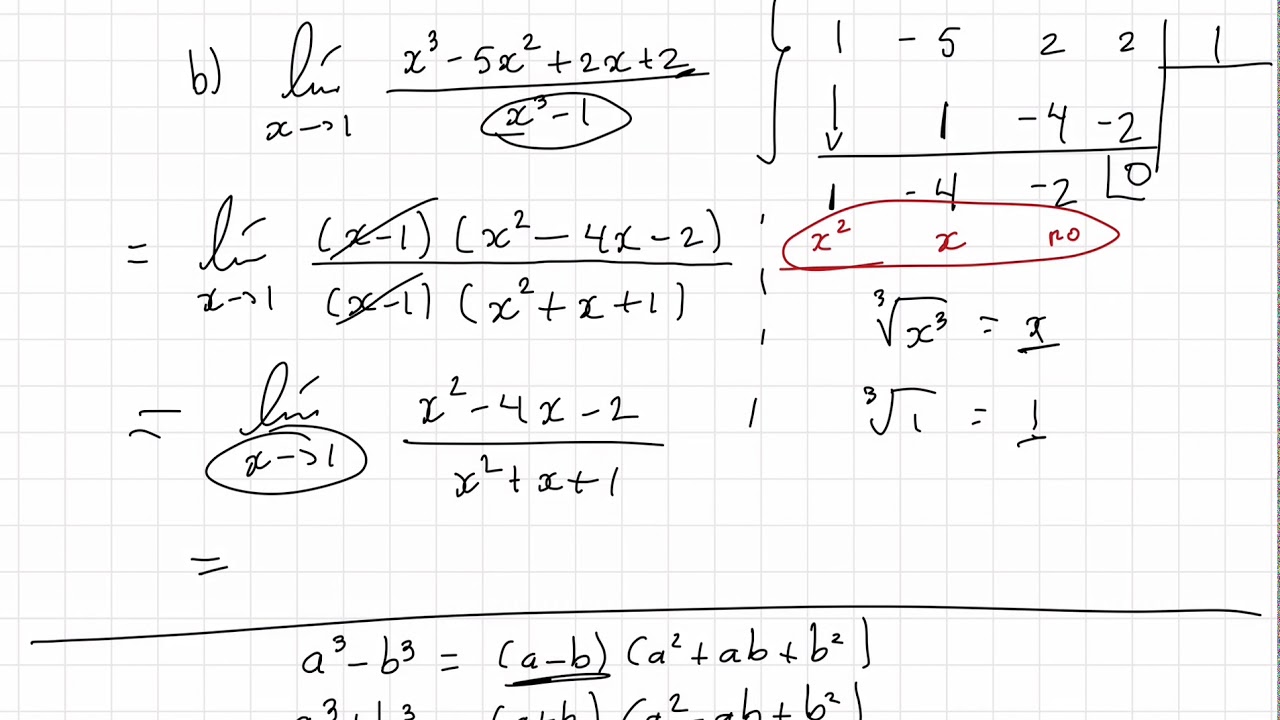 b) lím x→1 (x³ - 5x² + 2x + 2)/(x³ - 1)
1 -5 2 2 | 1
↓ 1 -4 -2
1 -4 -2 | 0
x² x no
= lím x→1 (x-1)(x² - 4x - 2)/(x-1)(x² + x + 1)
∛x³ = x
= lím x→1 (x² - 4x - 2)/(x² + x + 1)
∛1 = 1
=
a³ - b³ = (a-b)(a² + ab + b²)